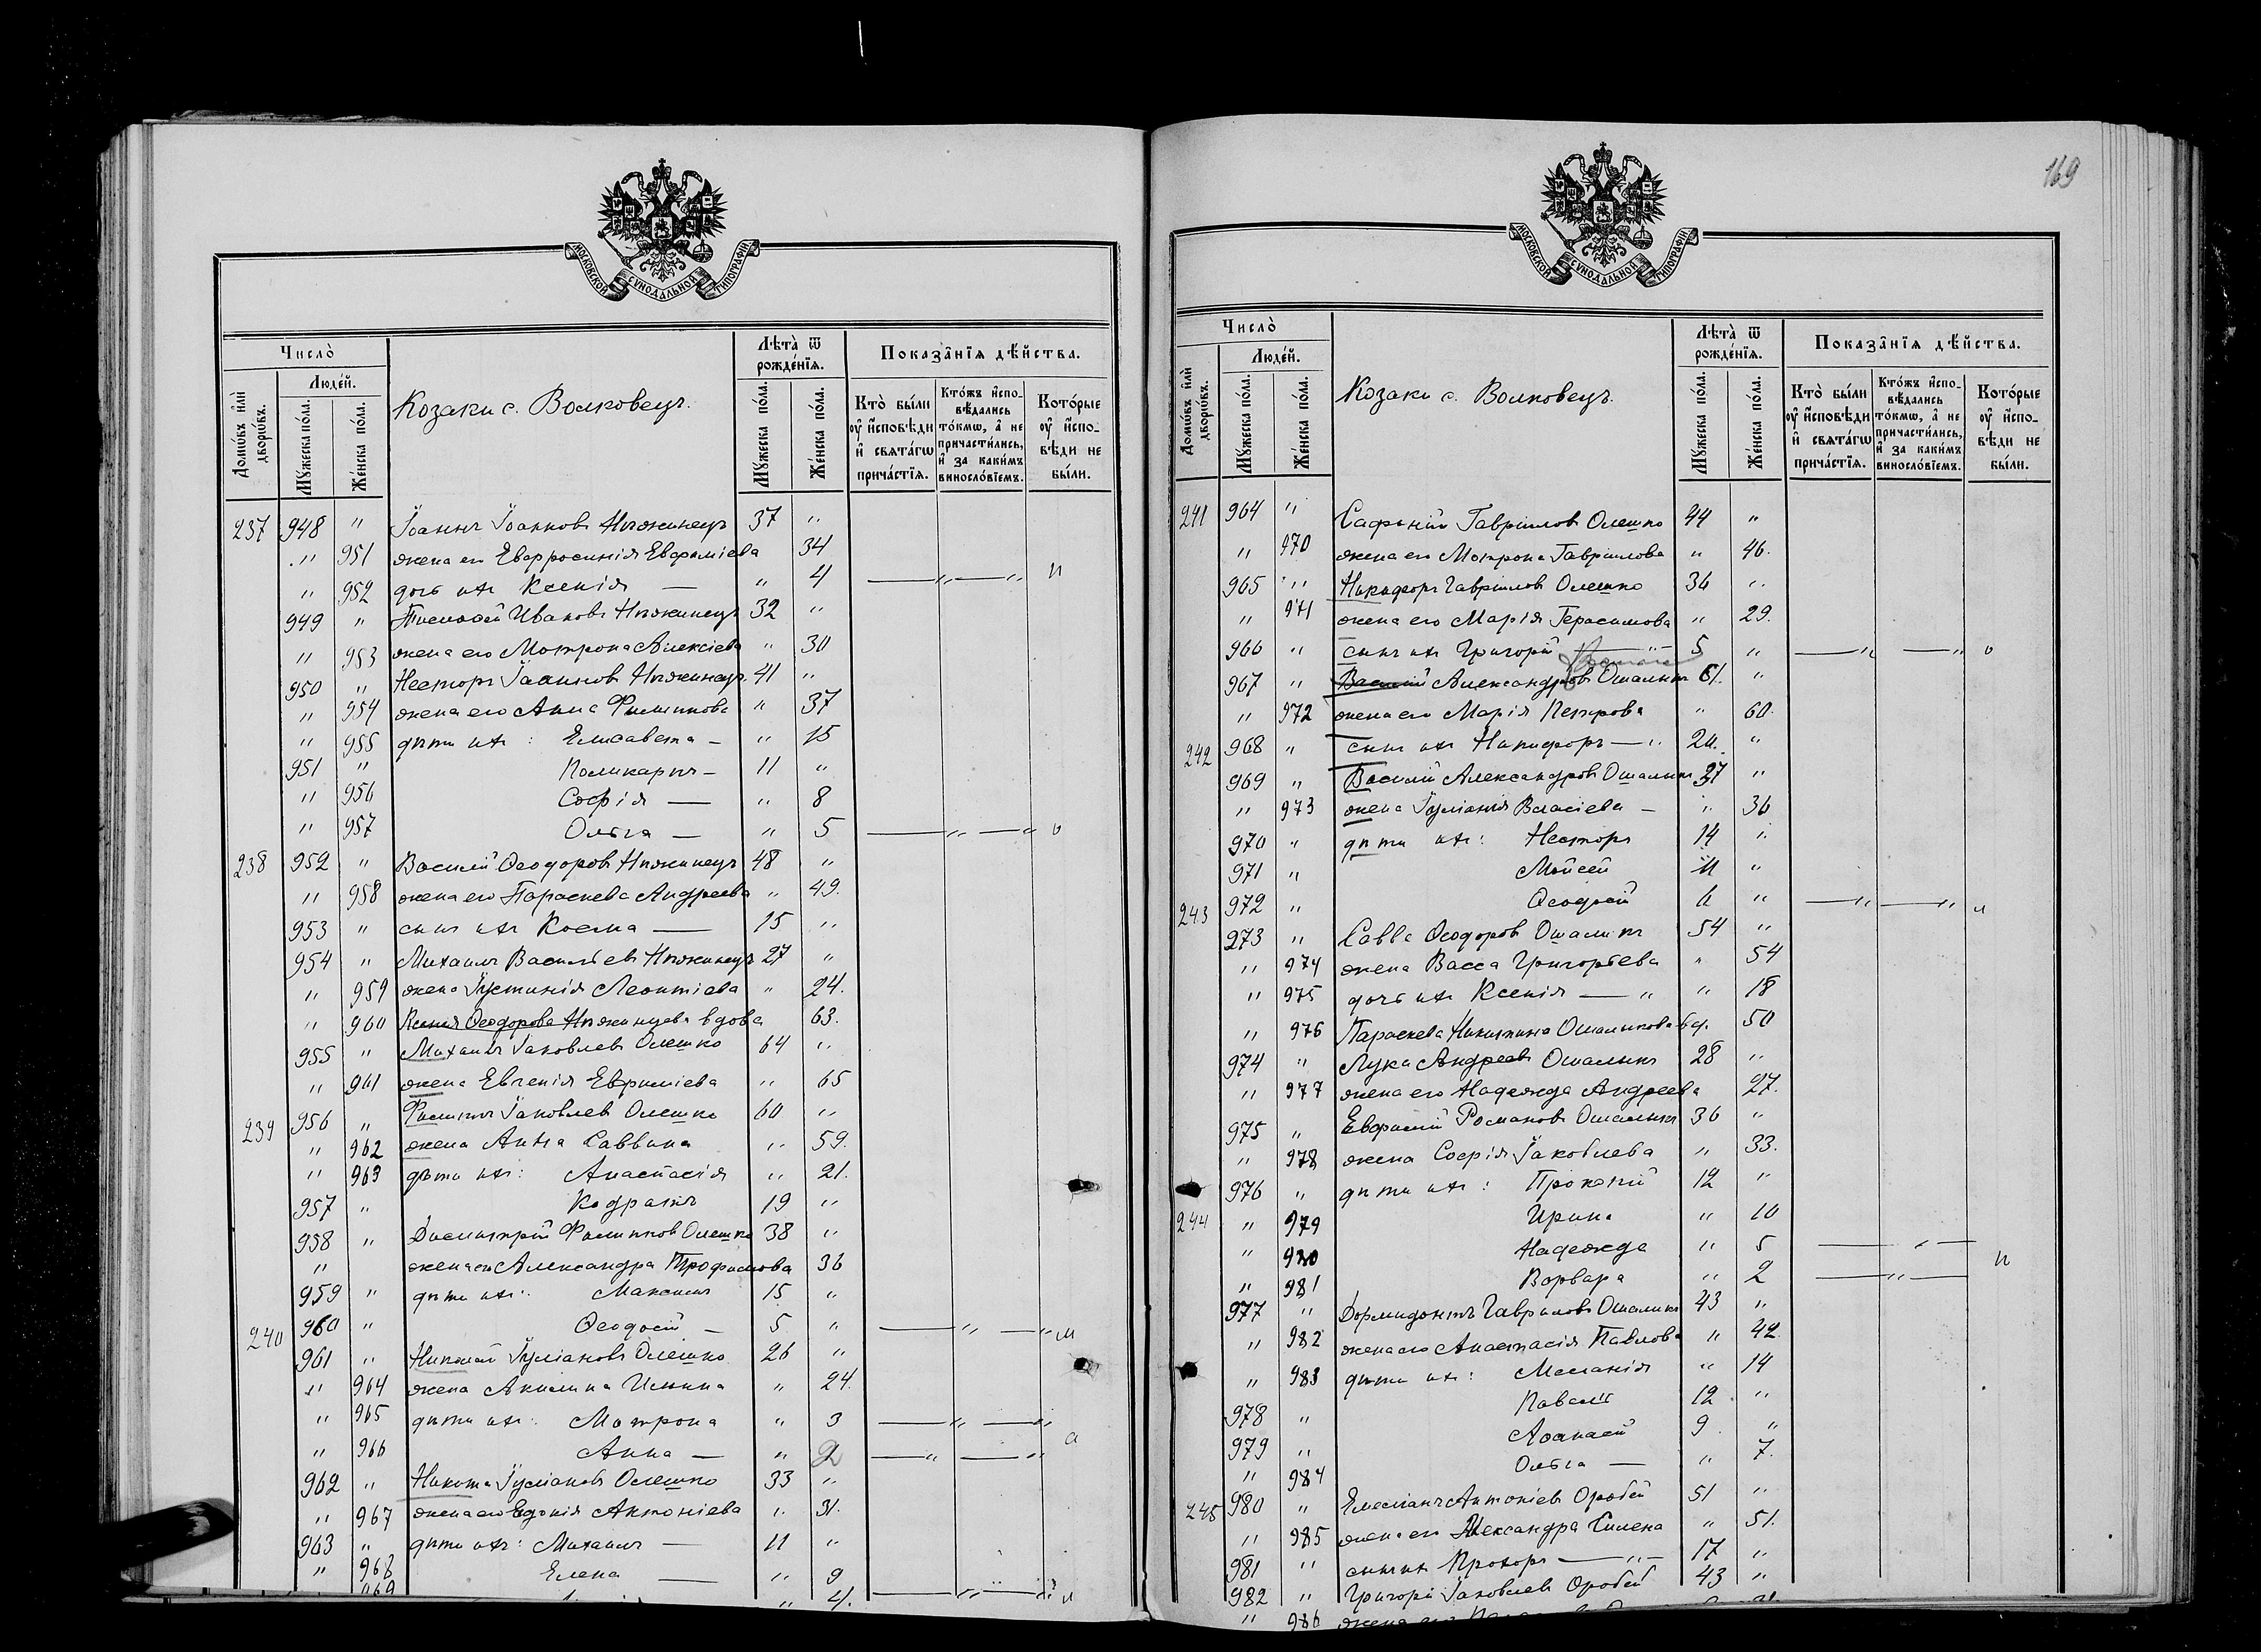 МОСКОВСКОЙ СѴНОДАЛЬНОЙ ТИПОГРАФІИ
Число̀
Людей.
Домѡвъ и҆лѝ дворѡвъ.
Мꙋжеска по́ла.
Же́нска по́ла.
Козаки с. Волковецъ.
Лѣта̀ ѿ рожде́нїѧ.
Мꙋжеска по́ла.
Же́нска по́ла.
Показа̑нїѧ дѣ́йства.
Кто̀ бы́ли ᲂу҆ и҆сповѣди и҆ свѧта́гѡ прича́стїѧ.
Кто́жъ и҆спо-вѣдались то́кмѡ, а҆ не причасти́лись, и҆ за каки́мъ винословїемъ.
Кото́рые ᲂу҆ и҆спо-вѣди не бы́ли.
237 948 " Іоаннъ Іоанновъ Нѣжинецъ 37 "
" 951 жена его Евфросинія Евфиміева 34
" 952 дочь ихъ Ксенія — " 4
949 " Тимофей Ивановъ Нѣжинецъ 32 "
" 953 жена его Матрона Алексіева " 30
950 " Несторъ Іоанновъ Нѣжинецъ 41 "
" 954 жена его Анна Филиппова " 37
" 955 дѣти ихъ: Елисавета — " 15
951 " Поликарпъ — 11 "
" 956 Софія — " 8
" 957 Ольга — " 5
238 952 " Василій Ѳеодоровъ Нѣжинецъ 48 "
" 958 жена его Параскева Андреева " 49.
953 " сынъ ихъ Косма — 15 "
954 " Михаилъ Васильевъ Нѣжинецъ 27 "
" 959 жена Іустинія Леонтіева " 24.
" 960 Ксенія Ѳеодорова Нѣжинцева вдова 63.
955 " Михаилъ Іаковлевъ Олешко 64 "
" 961 жена Евгенія Евфиміева " 65
239 956 " Филиппъ Іаковлевъ Олешко 60 "
" 962 жена Анна Саввина " 59.
" 963 дѣти ихъ: Анастасія " 21.
957 " Кодратъ 19 "
958 " Димитрій Филипповъ Олешко 38 "
" жена его Александра Трофимова 36
959 " дѣти ихъ: Максимъ 15 "
240 960 " Ѳеодосій — 5 "
961 " Николай Іуліановъ Олешко 26 "
" 964 жена Акилина Ильина " 24.
" 965 дѣти ихъ: Матрона " 3
" 966 Анна — " 2
962 " Никита Іуліановъ Олешко 33 "
" 967 жена его Евдокія Антоніева " 31.
963 " дѣти ихъ: Михаилъ — 11 "
" 968 Елена — " 9
969 " 4.
169
МОСКОВСКОЙ СѴНОДАЛЬНОЙ ТИПОГРАФІИ
Число̀
Людей.
Домѡвъ и҆лѝ дворѡвъ.
Мꙋжеска по́ла.
Же́нска по́ла.
Козаки с. Волковецъ.
Лѣта̀ ѿ рожде́нїѧ.
Мꙋжеска по́ла.
Же́нска по́ла.
Показа̑нїѧ дѣ́йства.
Кто̀ бы́ли ᲂу҆ и҆сповѣди и҆ свѧта́гѡ прича́стїѧ.
Кто́жъ и҆спо-вѣдались то́кмѡ, а҆ не причасти́лись, и҆ за каки́мъ винословїемъ.
Кото́рые ᲂу҆ и҆спо-вѣди не бы́ли.
241 964 " Гавріиловъ Олешко 44 "
" 970 жена его Матрона Гавріилова " 46.
965 " Никифоръ Гавріиловъ Олешко 36 "
" 971 жена его Марія Герасимова " 29.
966 " сынъ ихъ Григорій — 5 "
967 " Василій Александровъ Ошалинъ 61. "
" 972 жена его Марія Петрова " 60.
242 968 " сынъ ихъ Никифоръ — " 20. "
969 " Василій Александровъ Ошалинъ 37 "
" 973 жена Іуліанія Власіева — " 36
970 " дѣти ихъ: Несторъ 14 "
971 " Мойсей 11 "
243 972 " Ѳеодосій 6 "
973 " Савва Ѳеодоровъ Ошалинъ 54 "
" 974 жена Васса Григорьева " 54
" 975 дочь ихъ Ксенія — " " 18
" 976 Параскева Никитина Ошалинова 50
974 " Лука Андреевъ Ошалинъ 28 "
" 977 жена его Надежда Андреева 27.
975 " Евфимій Романовъ Ошалинъ 36 "
" 978 жена Софія Іаковлева " 33.
976 " дѣти ихъ: Прокопій 12 "
244 " 979 Ирина " 10
" 980 Надежда " 5
" 981 Варвара " 2
977 " Дормидонтъ Гавриловъ Ошалинъ 43 "
" 982 жена его Анастасія Павлова " 42.
" 983 дѣти ихъ: Меланія " 14
978 " Павелъ 12 "
979 " Аѳанасій 9 "
" 984 Ольга — " 7.
245 980 " Емеліанъ Антоніевъ Оробей 51 "
" 985 жена его Александра " 51.
981 " сынъ ихъ Прохоръ — " — 17 "
982 " Григорій Іаковлевъ Оробей 43 "
" 986 жена его